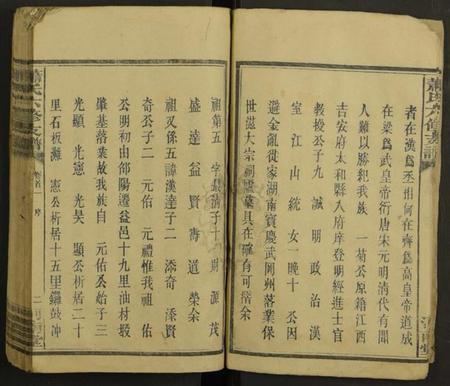 蕭氏六修支譜
者在漢爲丞相何在齊爲高皇帝道成
在梁爲武皇帝衍唐宋元明清代有聞
人難以勝紀我族一菊公原籍江西
吉安府太和縣入府庠登明經進士官
教授公子九誠明政治漢
室江山統女一晚十公因
避金亂從家湖南寶慶武岡州落業保
世滋大宗祠譜具在確有可稽余
祖第五字清子十財源茂
盛達益賢壽道榮余
祖又係五諱漢達子二添奇添賢
奇公子二元佑元禮惟我祖佑
公明初由邵陽遷益邑十九里油材塅
肇基落業故我族自元佑公始子三
光顯光憲光昊顯公析居二十
里石板灘憲公析居十五里鑼鼓冲
蕭氏六修支譜
卷首
序
二